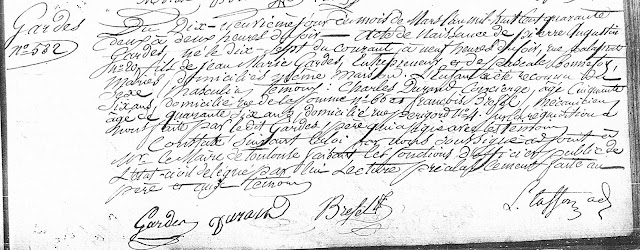 Gardes
n° 532
Du dix-neuvième jour du mois de Mars l'an mil huit cent quarante
deux à deux heures du soir — Acte de Naissance de pierre Augustin
Gardes, né le dix-sept du courant à neuf heures du soir, rue
n° 20, fils de Jean Marie Gardes, Entrepreneur, et de pascale Bonnefoy,
mariés domiciliés même maison. L'enfant a été reconnu de
sexe Masculin témoins: Charles Durand Concierge, agé Cinquante
six ans, domicilié rue de la pomme n° 66 et françois Mécanicien
agé de quarante six ans, domicilié rue perigord n° 4. Sur la réquisition à
nous faite par le dit Gardes père qui a signé avec les témoins
Constaté Suivant la loi par nous soussigné adjoint à
Mr. le Maire de Toulouse faisant les fonctions d'officier public de
l'état civil délégué par lui Lecture préalablement faite au
père et aux témoins
Gardes Durand